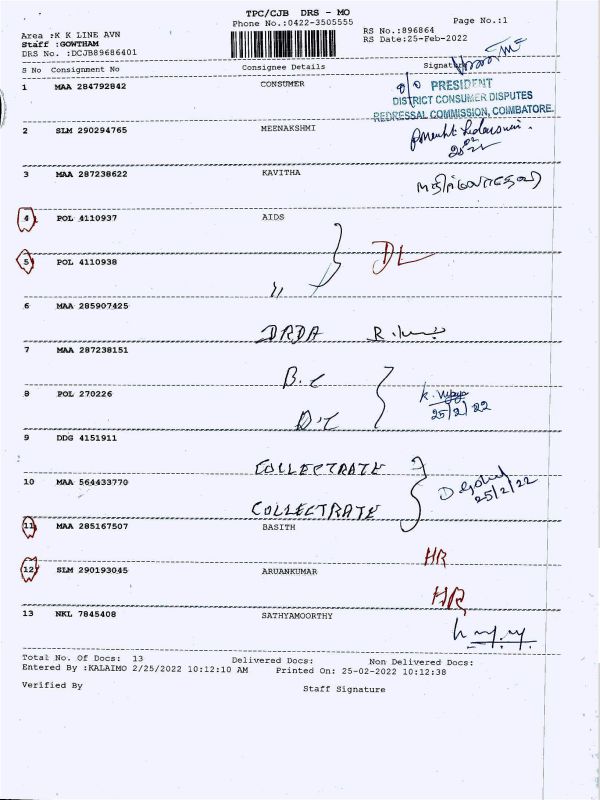 TPC/CJB DRS - MO
Phone No.:0422-3505555
Page No.:1
Area :K K LINE AVN
Staff :GOWTHAM
DRS No. :DCJB89686401
RS No.:896864
RS Date:25-Feb-2022
S No Consignment No Consignee Details Signature
1 MAA 284792842 CONSUMER
PRESIDENT
DISTRICT CONSUMER DISPUTES
REDRESSAL COMMISSION, COIMBATORE.
2 SLM 290294765 MEENAKSHMI
3 MAA 287238622 KAVITHA
4 POL 4110937 AIDS
DL
5 POL 4110938
〃
6 MAA 285907425
DRDA
7 MAA 287238151
B.C
8 POL 270226
K. Vijaya
25/2/22
D.C
9 DDG 4151911
COLLECTRATE
10 MAA 564433770
25/2/22
COLLECTRATE
11 MAA 285167507 BASITH
HR
12 SLM 290193045 ARUANKUMAR
HR
13 NKL 7845408 SATHYAMOORTHY
Total No. Of Docs: 13 Delivered Docs: Non Delivered Docs:
Entered By :KALAIMO 2/25/2022 10:12:10 AM Printed On: 25-02-2022 10:12:38
Verified By Staff Signature